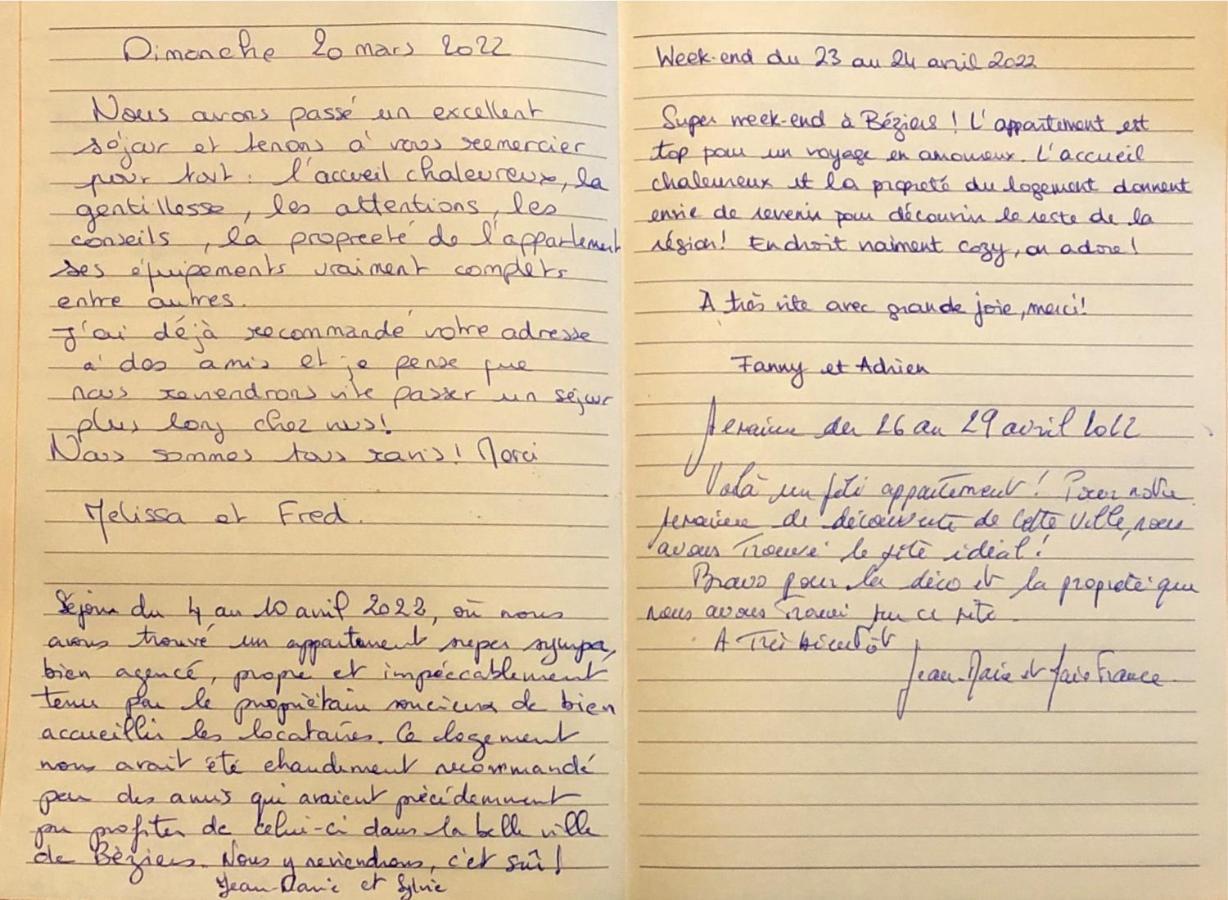 Dimanche 20 mars 2022
Nous avons passé un excellent
séjour et tenons à vous remercier
pour tout : l'accueil chaleureux, la
gentillesse, les attentions, les
conseils, la propreeté de l'appartement
ses équipements vraiment complets
entre autres.
J'ai déjà recommandé votre adresse
à des amis et je pense que
nous reviendrons vite passer un séjour
plus long chez vous!
Nous sommes tous ravis! Merci
Melissa et Fred.
Séjour du 4 au 10 avril 2022, où nous
avons trouvé un appartement super sympa,
bien agencé, propre et impéccablement
tenu par le propriétaire soucieux de bien
accueillir les locataires. Ce logement
nous avait été chaudement recommandé
par des amis qui avaient précédemment
pu profiter de celui-ci dans la belle ville
de Béziers. Nous y reviendrons, c'est sûr!
Jean-Marie et Sylvie
Week-end du 23 au 24 avril 2022
Super week-end à Béziers ! L'appartement est
top pour un voyage en amoureux. L'accueil
chaleureux et la propreté du logement donnent
envie de revenir pour découvrir le reste de la
région! Endroit vraiment cozy, on adore!
A très vite avec grande joie, merci!
Fanny et Adrien
Semaine du 26 au 29 avril 2022
Voilà un joli appartement ! Pour notre
semaine de découverte de cette ville, nous
avons trouvé le gîte idéal!
Bravo pour la déco et la propreté que
nous avons trouvé sur ce site.
A Très bientôt
Jean-Marie et Marie France